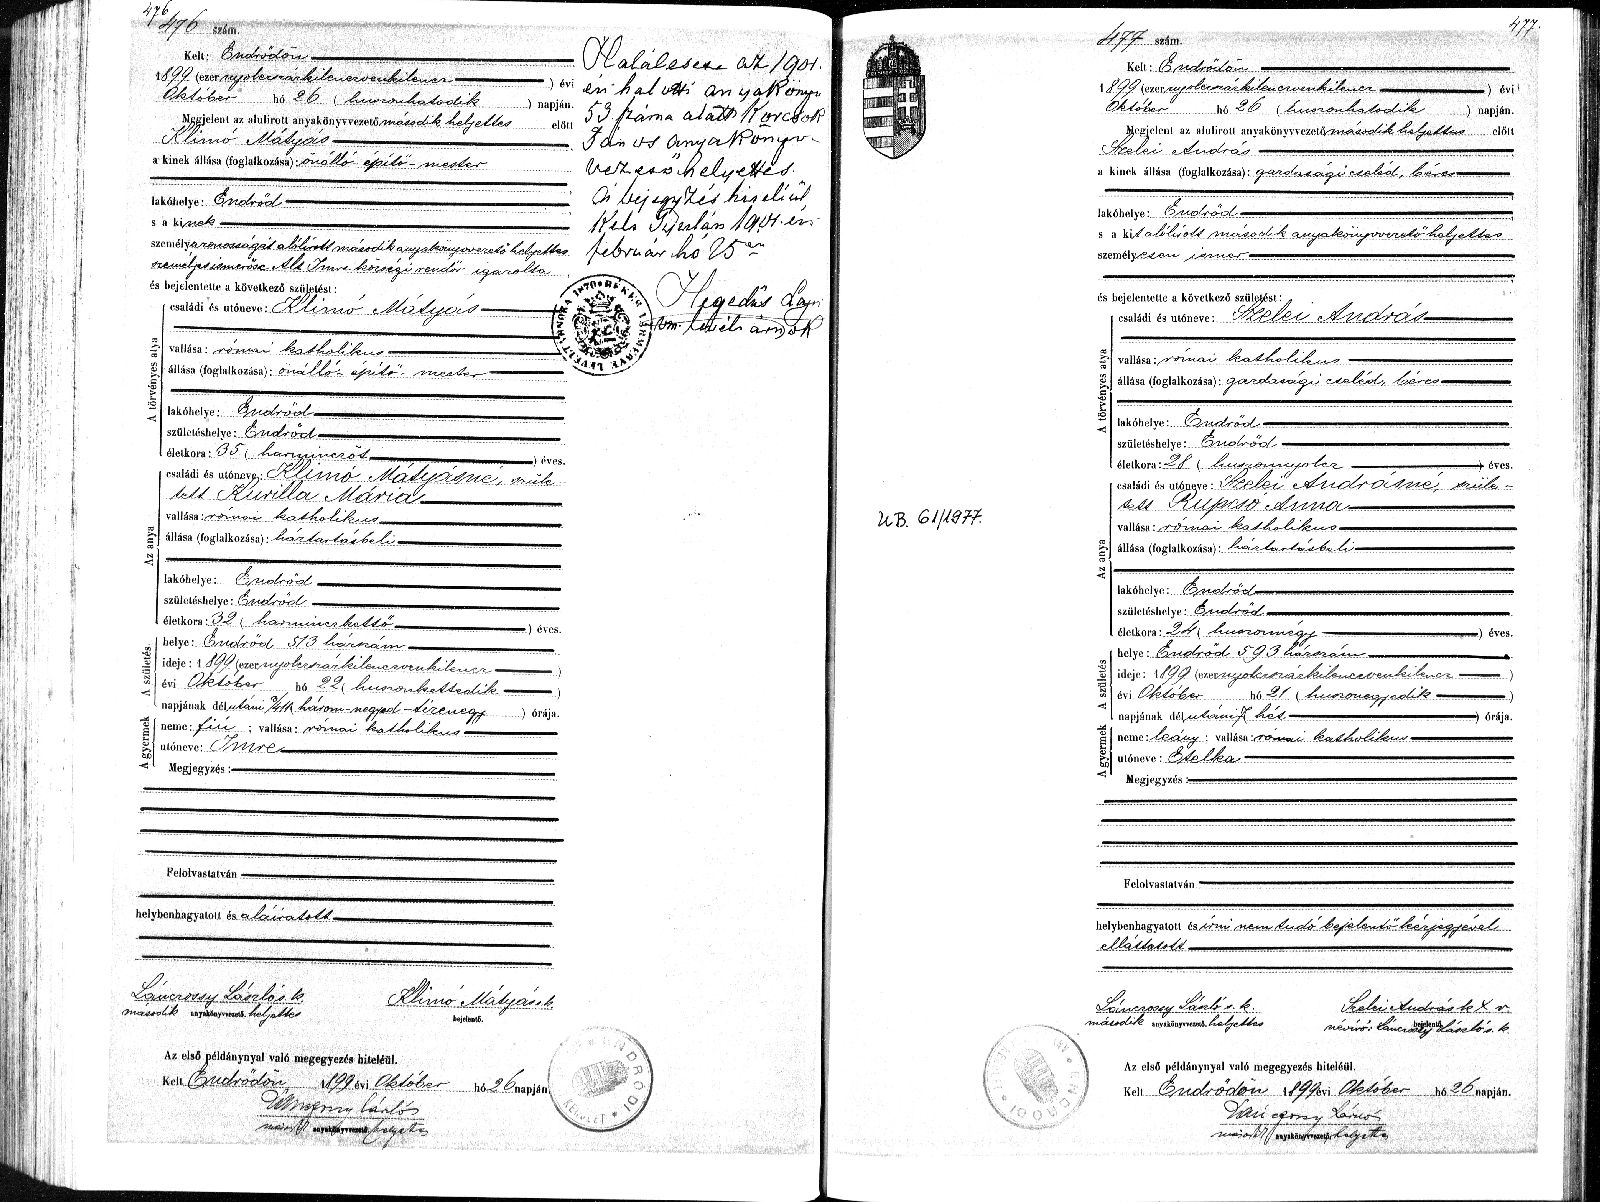 476
476 szám.
Kelt: Endrődön
1899 (ezernyolczszázkilenczvenkilencz ) évi
Október hó 26 (huszonhatodik ) napján.
Megjelent az alulirott anyakönyvvezető második helyettes előtt
Klimó Mátyás
a kinek állása (foglalkozása): önálló épitő-mester
lakóhelye: Endrőd
s a kinek
személyazonosságát alólirott második anyakönyvvezető helyettes
személyes ismerőse Alt Imre községi rendőr igazolta
és bejelentette a következő születést:
A törvényes atya
családi és utóneve: Klimó Mátyás
vallása: római katholikus
állása (foglalkozása): önálló-épitő-mester
lakóhelye: Endrőd
születéshelye: Endrőd
életkora: 35 (harminczöt ) éves.
Az anya
családi és utóneve: Klimó Mátyásné, szüle-
tett Kurilla Mária
vallása: római katholikus
állása (foglalkozása): háztartásbeli
lakóhelye: Endrőd
születéshelye: Endrőd
életkora: 32 (harminczkettő ) éves.
A születés
helye: Endrőd 513 házszám
ideje: 1899 (ezernyolczszázkilenczvenkilencz )
évi Október hó 22 (huszonkettedik )
napjának délutáni 3/4 11 három-negyed-tizenegy ) órája.
A gyermek
neme: fiú ; vallása: római katholikus
utóneve: Imre
Megjegyzés:
Felolvastatván
helybenhagyatott és aláiratott
Lánczossy László s. k. Klimó Mátyás s. k.
második anyakönyvvezető helyettes bejelentő.
Az első példánynyal való megegyezés hiteléül.
Kelt Endrődön 1899 évi Október hó 26 napján
Lánczossy László
második anyakönyvvezető helyettes
Halálesete az 1901.
évi halotti anyakönyv
53 száma alatt Korcsok
János anyakönyv-
vezető helyettes.
A bejegyzés hiteléül
Kelt Gyulán 1901 évi
február hó 25én
Hegedűs Lajos
vm. levéltárnok
BÉKÉS VÁRMEGYE LEVÉLTÁRNOKA 1870
ENDRŐDI
477.
477 szám.
Kelt: Endrődön
1899 (ezernyolczszázkilenczvenkilencz ) évi
Október hó 26 (huszonhatodik ) napján.
Megjelent az alulirott anyakönyvvezető második helyettes előtt
Szelei András
a kinek állása (foglalkozása): gazdasági cseléd, béres
lakóhelye: Endrőd
s a kit alólirott második anyakönyvvezető helyettes
személyesen ismer
és bejelentette a következő születést:
A törvényes atya
családi és utóneve: Szelei András
vallása: római katholikus
állása (foglalkozása): gazdasági cseléd, béres
lakóhelye: Endrőd
születéshelye: Endrőd
életkora: 28 (huszonnyolcz ) éves.
Az anya
családi és utóneve: Szelei Andrásné, szüle-
tett Rupcsó Anna
vallása: római katholikus
állása (foglalkozása): háztartásbeli
lakóhelye: Endrőd
születéshelye: Endrőd
életkora: 24 (huszonnégy ) éves.
A születés
helye: Endrőd 593 házszám
ideje: 1899 (ezernyolczszázkilenczvenkilencz )
évi Október hó 21 (huszonegyedik )
napjának délutáni 7 hét ) órája.
A gyermek
neme: leány ; vallása: római katholikus
utóneve: Etelka
Megjegyzés:
Felolvastatván
helybenhagyatott és irni nem tudó bejelentő kézjegyével
elláttatott
Lánczossy László s. k. Szelei András k X v.
második anyakönyvvezető helyettes bejelentő. névíró: Lánczossy László s. k.
Az első példánynyal való megegyezés hiteléül.
Kelt Endrődön 1899 évi Október hó 26 napján.
Lánczossy László
második anyakönyvvezető helyettes
UB. 61/1977.
ENDRŐDI